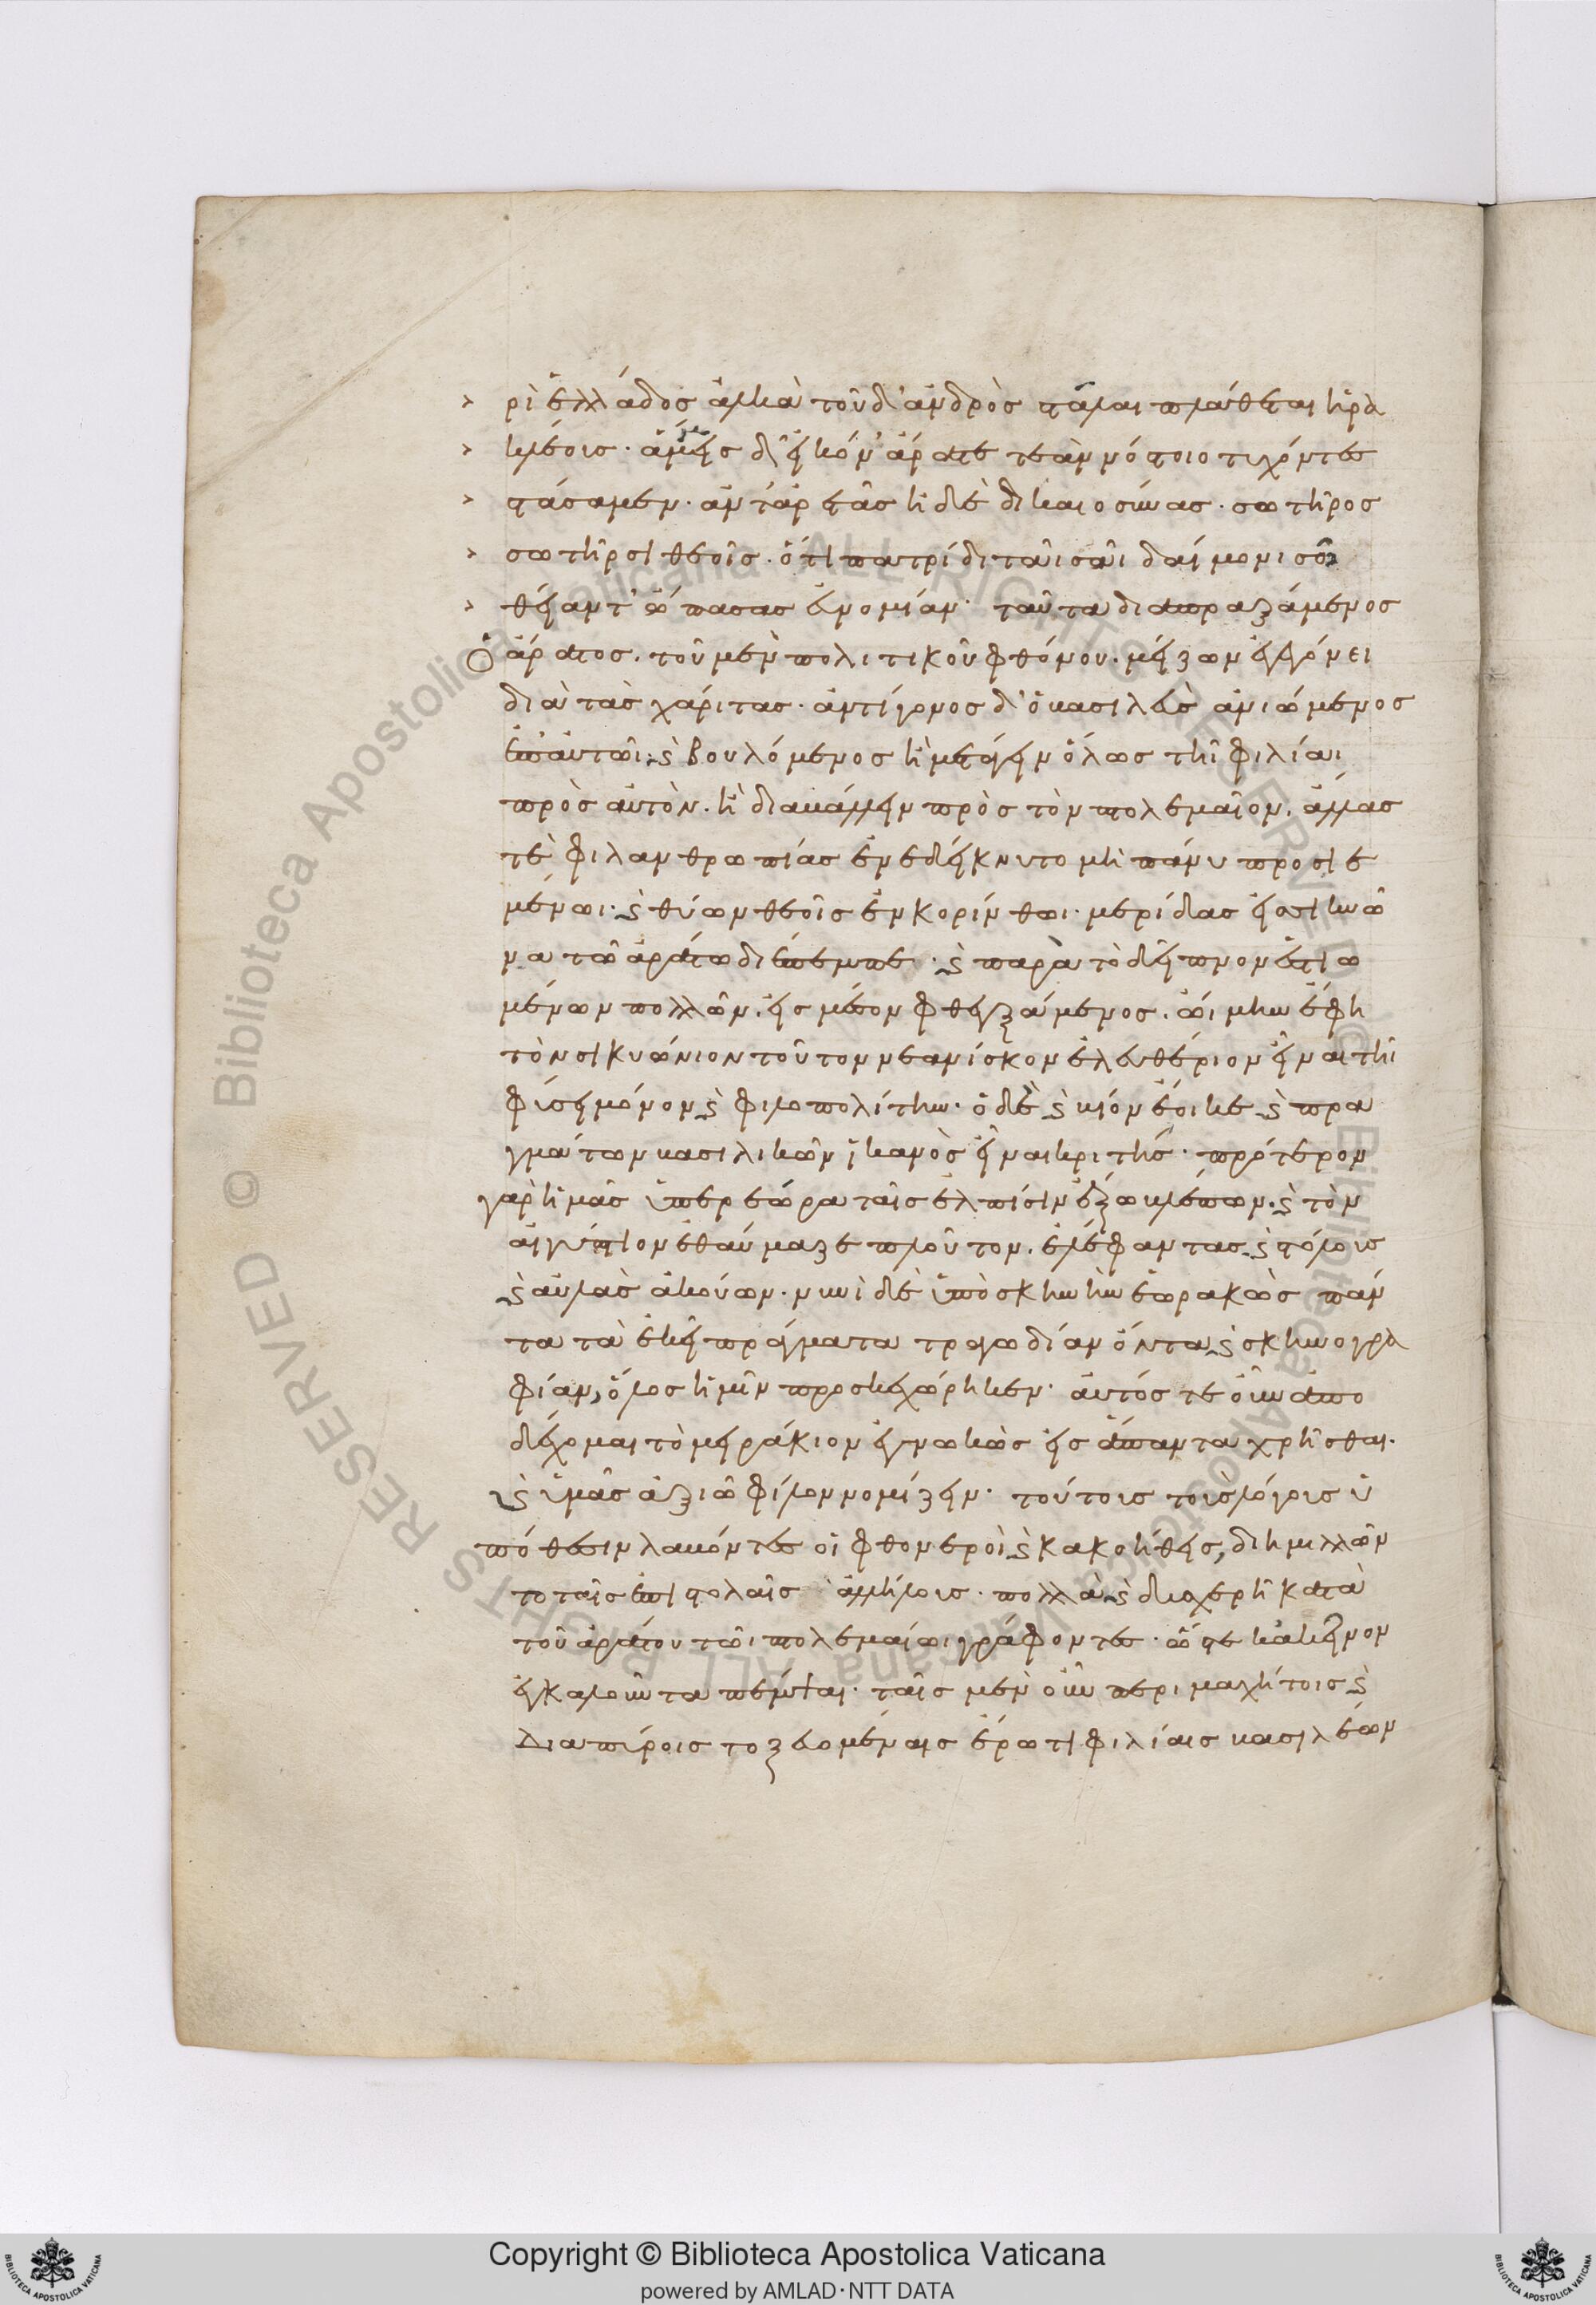 ρὶ ἑλλάδος ἀλκὰ τοῦδ' ἀνδρὸς στάλαι πλάθεται ἡρα
κλέοις· ἄμμες δ' εἰκόν' ἄρατε τεὰν νόστοιο τυχόντες
στάσαμεν· ἀντ' ἀρετᾶς ἠδὲ δικαιοσύνας· σωτῆρος
σωτῆρσι θεοῖς· ὅτι πατρίδι τᾶι σᾶι δαίμονι σῶι
θεῖαν τ' ὤπασας εὐνομίαν· ταῦτα διαπραξάμενος
ὁ ἄρατος· τοῦ μὲν πολιτικοῦ φθόνου· μείζων ἐγεγόνει
διὰ τὰς χάριτας· ἀντίγονος δ' ὁ βασιλεὺς ἀνιώμενος
ἐπ' αὐτῶι· καὶ βουλόμενος ἢ μετάγειν ὅλως τῆι φιλίαι
πρὸς αὐτὸν· ἢ διαβάλλειν πρὸς τὸν πτολεμαῖον· ἄλλας
τὲ φιλανθρωπίας ἐνεδείκνυτο μὴ πάνυ προσιε
μένωι· καὶ θύων θεοῖς ἐν κορίνθωι· μερίδας εἰς σικυῶ
να τῶ ἀράτω διέπεμπε· καὶ παρὰ τὸ δεῖπνον ἑστιω
μένων πολλῶν· εἰς μέσον φθεγξάμενος· ὤιμην ἔφη
τὸν σικυώνιον τοῦτον νεανίσκον ἐλευθέριον εἶναι τῆι
φύσει μόνον καὶ φιλοπολίτην· ὁ δὲ καὶ βίων ἔοικε καὶ πρα
γμάτων βασιλικῶν ἱκανὸς εἶναι κριτής· πρότερον
γὰρ ἡμᾶς ὑπερεώρα ταῖς ἐλπίσιν ἔξω βλέπων· καὶ τὸν
αἰγύπτιον ἐθαύμαζε πλοῦτον· ἐλέφαντας καὶ στόλους
καὶ αὐλὰς ἀκούων· νυνὶ δὲ ὑπὸ σκηνὴν ἑωρακὼς πάν
τα τὰ ἐκεῖ πράγματα τραγωδίαν ὄντα καὶ σκηνογρα
φίαν, ὅλος ἡμῖν προσκεχώρηκεν· αὐτός τε οὖν ἀπο
δέχομαι τὸ μειράκιον ἐγνωκὼς εἰς ἅπαντα χρῆσθαι·
καὶ ὑμᾶς ἀξιῶ φίλον νομίζειν· τούτους τοὺς λόγους ὑ
πόθεσιν λαβόντες οἱ φθονεροὶ καὶ κακοήθεις, διημιλλῶν
το ταῖς ἐπιστολαῖς ἀλλήλοις· πολλὰ καὶ δυσχερῆ κατὰ
τοῦ ἀράτου τῶι πτολεμαίωι γράφοντες· ὥστε κἀκεῖνον
ἐγκαλοῦντα πέμψαι· ταῖς μὲν οὖν περιμαχήτοις καὶ
διαπύροις τοξευομέναις ἔρωτι φιλίαις βασιλέων